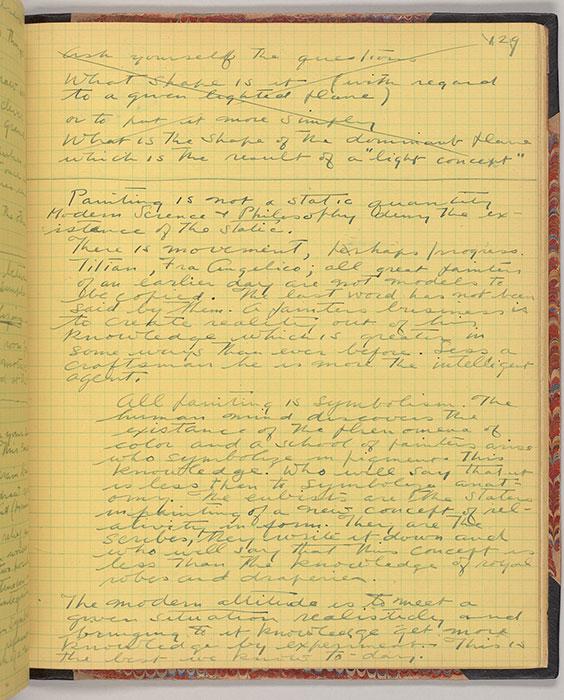 129
Ask yourself the questions
What shape is it (with regard
to a given lighted plane)
or to put it more simply
What is the shape of the dominant plane
which is the result of a "light concept"
Painting is not a static quantity
Modern Science & Philosophy deny the ex-
istance of the static.
There is movement, perhaps progress.
Titian, Fra Angelico; all great painters
of an earlier day are not models to
be copied. The last word has not been
said by them. A painters business is
to create reality out of his
knowledge which is greater in
some ways than ever before. Less a
craftsman he is more the intelligent
agent.
All painting is symbolism. The
human mind discovers the
existance of the phenomena of
color and a school of painters arise
who symbolize in pigments this
knowledge. Who will say that it
is less than to symbolize anat-
omy. The cubists are the staters
in painting of a new concept of rel-
ativity in form. They are the
scribes, they write it down and
who will say that this concept is
less than the knowledge of royal
robes and draperies.
The modern attitude is to meet a
given situation realistically and
bringing to it knowledge get more
knowledge by experiment. This is
the best we know to-day.